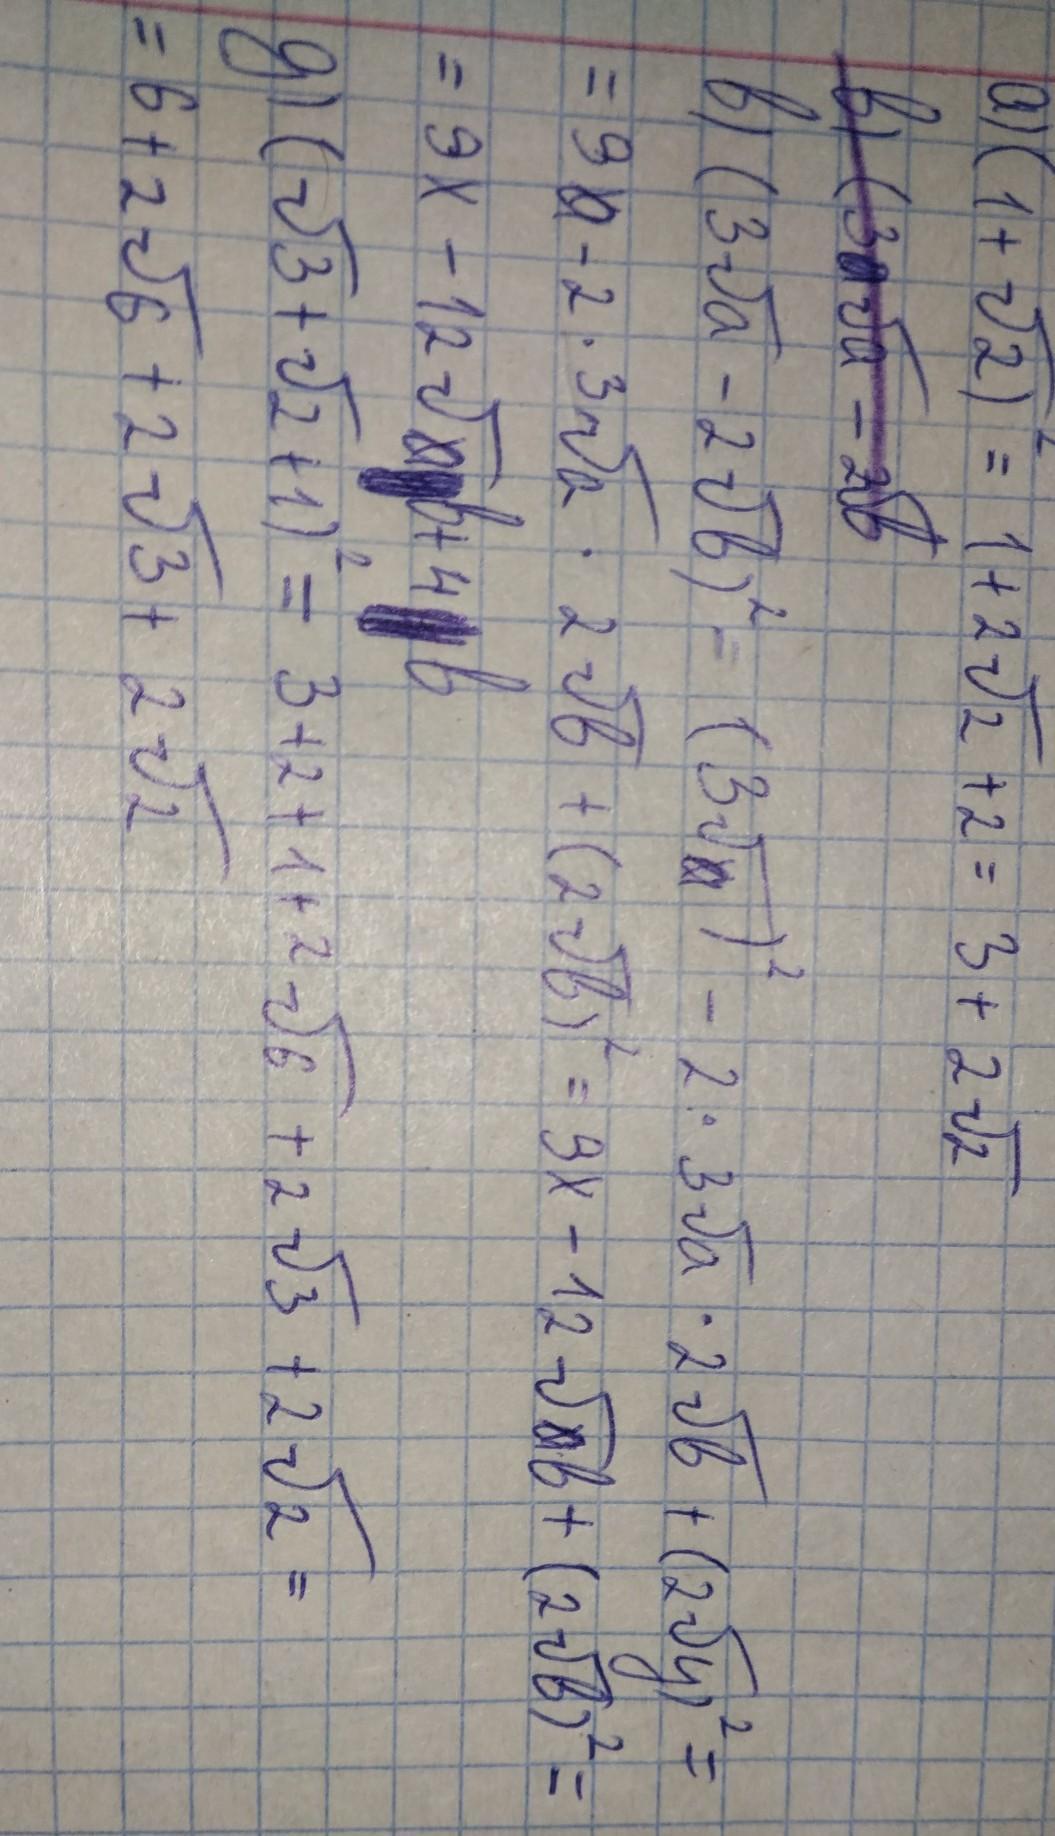 а) (1+√2)² = 1+2√2+2= 3+2√2
в) (3√a-2√b
в) (3√a-2√b)² = (3√a)² - 2·3√a·2√b+(2√y)² =
= 9a-2·3√a·2√b+(2√b)² = 9x-12√ab+(2√b)² =
= 9x-12√ab+4b
д) (√3+√2+1)² = 3+2+1+2√6+2√3+2√2 =
= 6+2√6+2√3+2√2